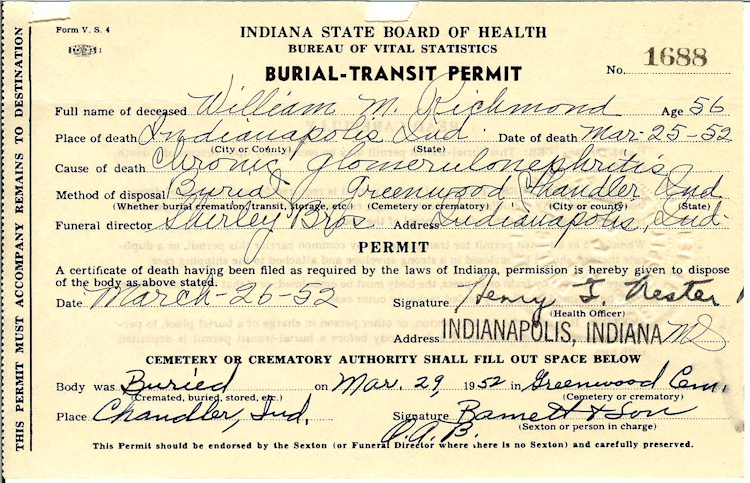 Form V. S. 4
INDIANA STATE BOARD OF HEALTH
BUREAU OF VITAL STATISTICS
BURIAL-TRANSIT PERMIT
No. 1688
Full name of deceased William M. Richmond Age 56
Place of death Indianapolis Ind. Date of death Mar-25-52
(City or County) (State)
Cause of death Chronic glomerulonephritis
Method of disposal Burial Greenwood Chandler Ind
(Whether burial cremation, transit, storage, etc.) (Cemetery or crematory) (City or county) (State)
Funeral director Shirley Bros Address Indianapolis, Ind.
PERMIT
A certificate of death having been filed as required by the laws of Indiana, permission is hereby given to dispose
of the body as above stated.
Date March-26-52 Signature Henry G. Nester
(Health Officer)
Address INDIANAPOLIS, INDIANA MD
CEMETERY OR CREMATORY AUTHORITY SHALL FILL OUT SPACE BELOW
Body was Buried on Mar. 29, 1952 in Greenwood Cem.
(Cremated, buried, stored, etc.) (Cemetery or crematory)
Place Chandler, Ind. Signature Barnett & Son
(Sexton or person in charge)
O.A.B.
This Permit should be endorsed by the Sexton (or Funeral Director where there is no Sexton) and carefully preserved.
THIS PERMIT MUST ACCOMPANY REMAINS TO DESTINATION